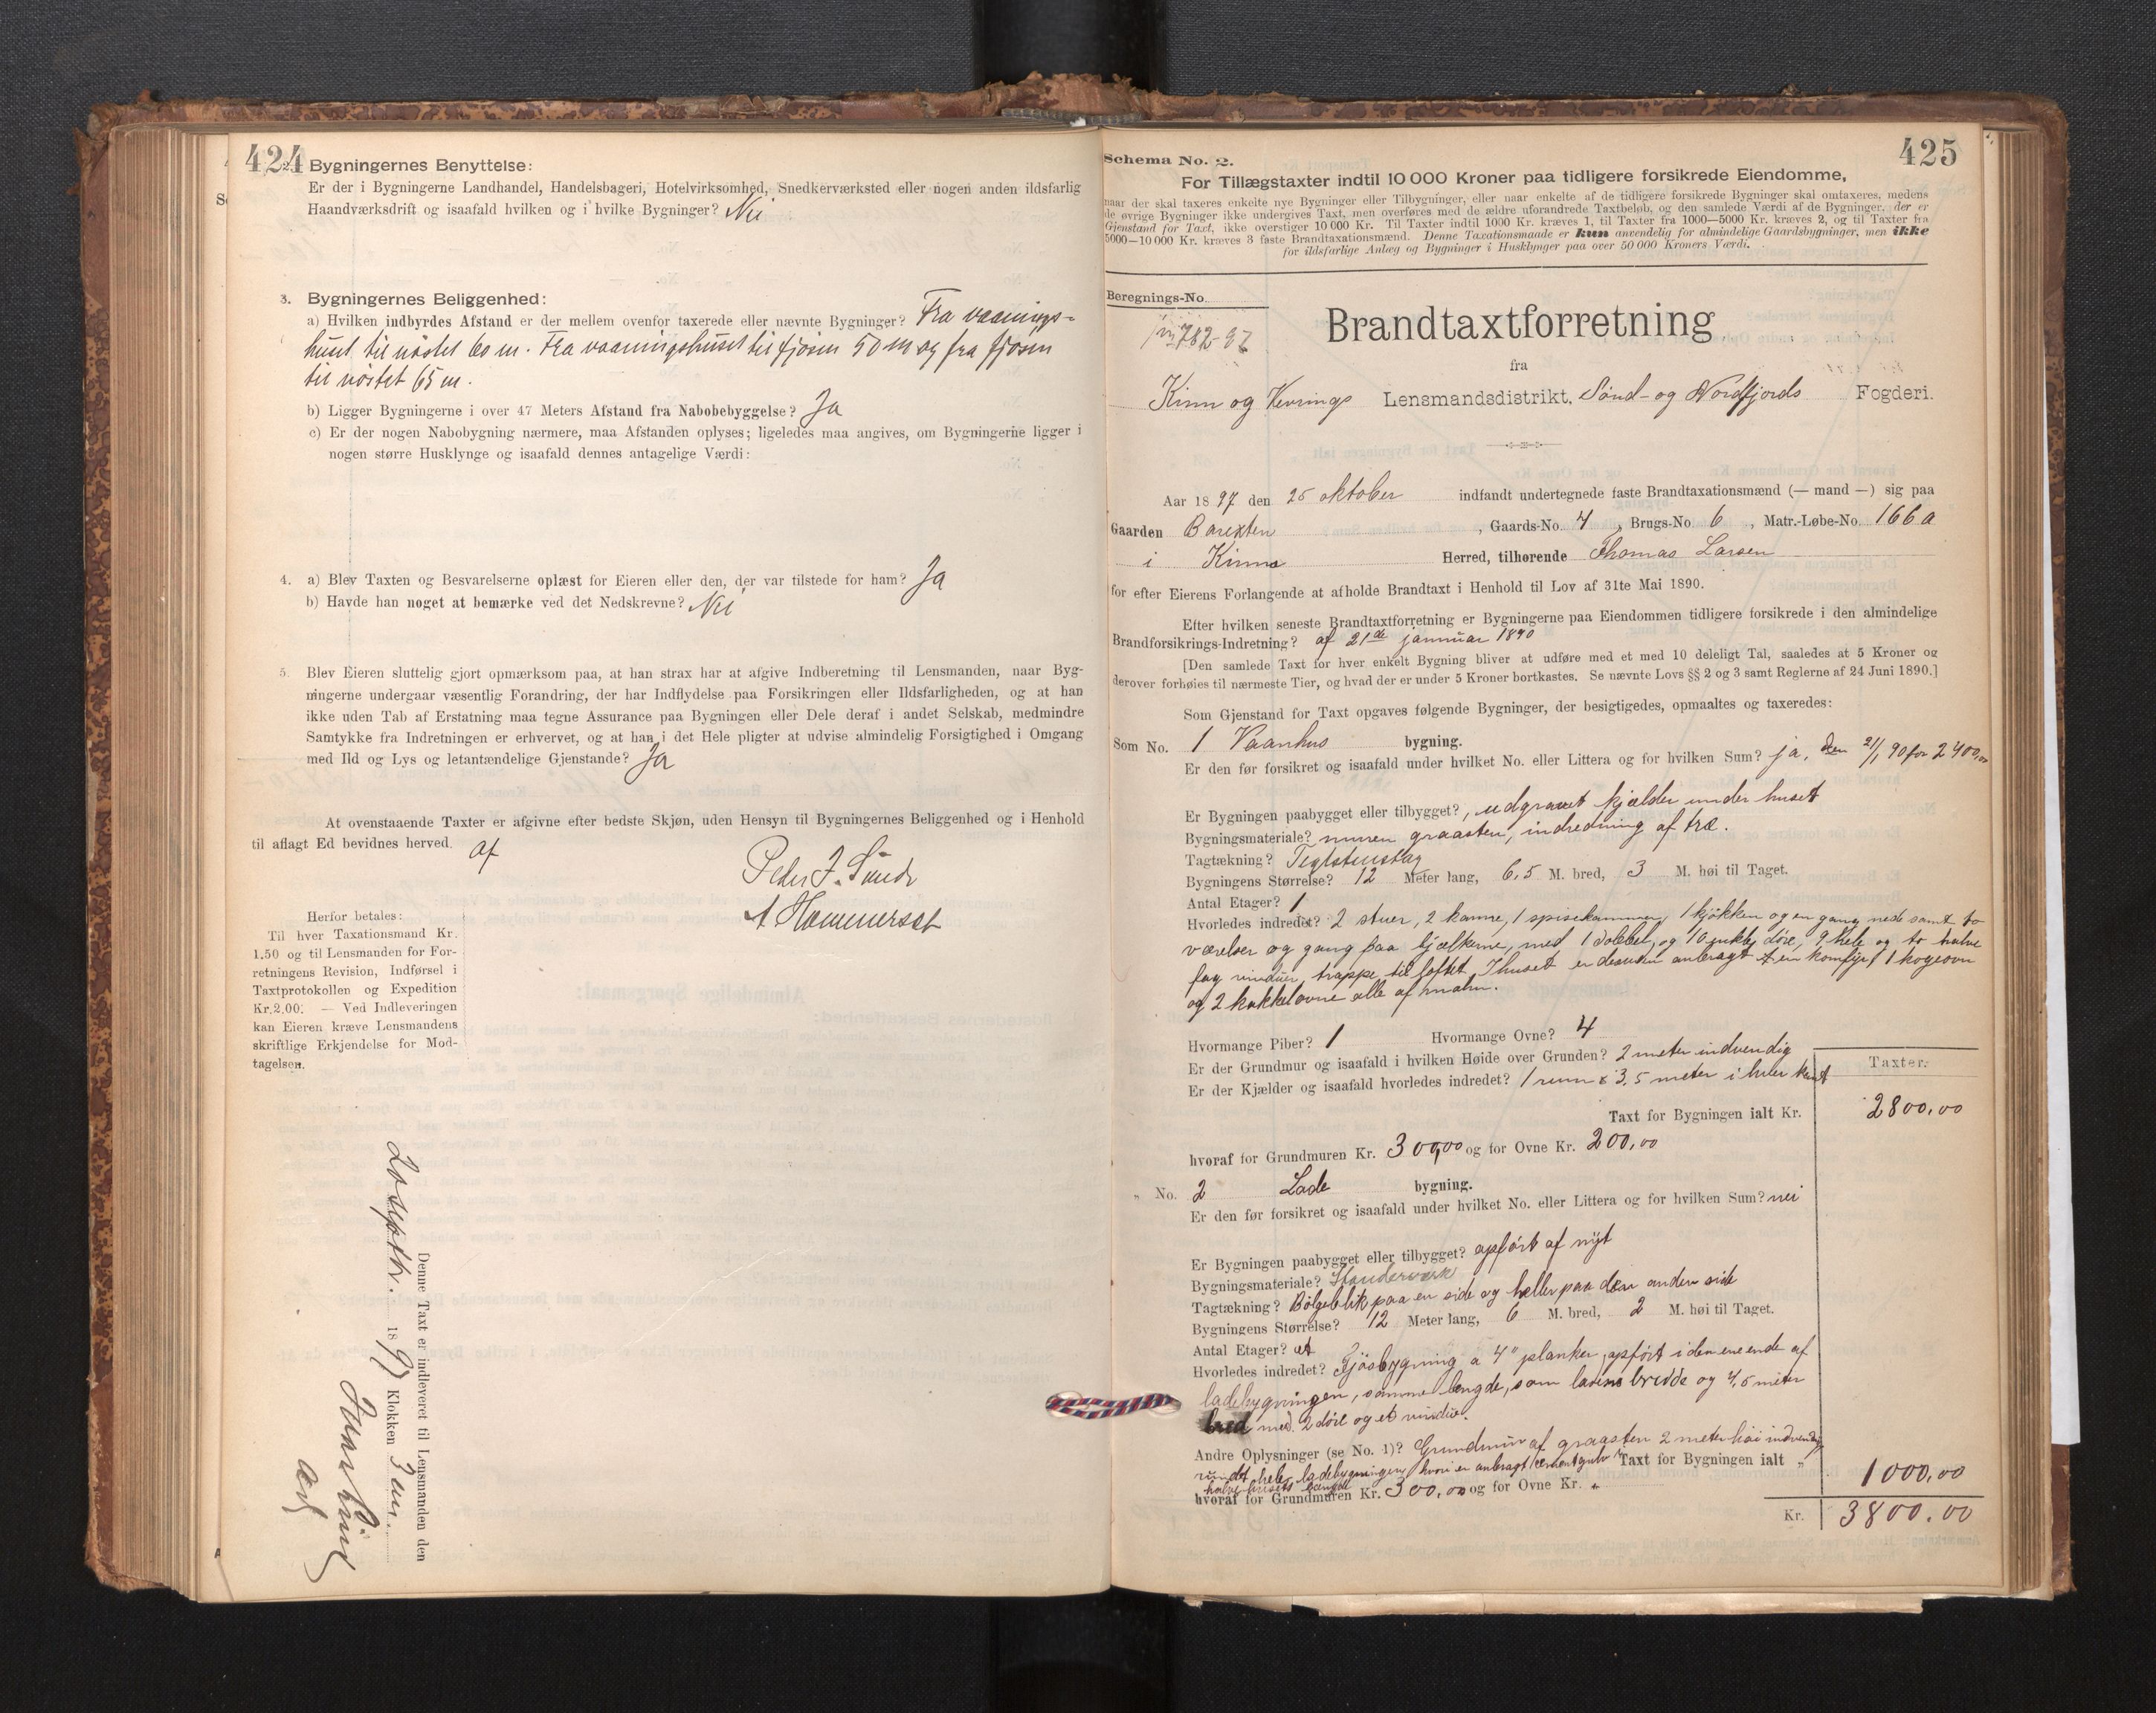 424
2. Bygningernes Benyttelse:
Er der i Bygningerne Landhandel, Handelsbageri, Hotelvirksomhed, Snedkerværksted eller nogen anden ildsfarlig
Haandværksdrift og isaafald hvilken og i hvilke Bygninger? Nei
3. Bygningernes Beliggenhed:
a) Hvilken indbyrdes Afstand er der mellem ovenfor taxerede eller nævnte Bygninger? Fra vaanings-
huset til nöstet 60 m. Fra vaaningshuset til fjösen 50 m og fra fjösen
til nöstet 65 m.
b) Ligger Bygningerne i over 47 Meters Afstand fra Nabobebyggelse? Ja
c) Er der nogen Nabobygning nærmere, maa Afstanden oplyses; ligeledes maa angives, om Bygningerne ligger i
nogen større Husklynge og isaafald dennes antagelige Værdi:
4. a) Blev Taxten og Besvarelserne oplæst for Eieren eller den, der var tilstede for ham? Ja
b) Havde han noget at bemærke ved det Nedskrevne? Nei
5. Blev Eieren sluttelig gjort opmærksom paa, at han strax har at afgive Indberetning til Lensmanden, naar Byg-
ningerne undergaar væsentlig Forandring, der har Indflydelse paa Forsikringen eller Ildsfarligheden, og at han
ikke uden Tab af Erstatning maa tegne Assurance paa Bygningen eller Dele deraf i andet Selskab, medmindre
Samtykke fra Indretningen er erhvervet, og at han i det Hele pligter at udvise almindelig Forsigtighed i Omgang
med Ild og Lys og letantændelige Gjenstande? Ja
At ovenstaaende Taxter er afgivne efter bedste Skjøn, uden Hensyn til Bygningernes Beliggenhed og i Henhold
til aflagt Ed bevidnes herved. af
Peder J. Sunde
A Hammerset
Herfor betales:
Til hver Taxationsmand Kr.
1.50 og til Lensmanden for For-
retningens Revision, Indførsel i
Taxtprotokollen og Expedition
Kr. 2.00. — Ved Indleveringen
kan Eieren kræve Lensmandens
skriftlige Erkjendelse for Mod-
tagelsen.
Denne Taxt er indleveret til Lensmanden den
20 septbr. 1897 Klokken 3 em.
425
Schema No. 2.
For Tillægstaxter indtil 10 000 Kroner paa tidligere forsikrede Eiendomme,
naar der skal taxeres enkelte nye Bygninger eller Tilbygninger, eller naar enkelte af de tidligere forsikrede Bygninger skal omtaxeres, medens
de øvrige Bygninger ikke undergives Taxt, men overføres med de ældre uforandrede Taxtbeløb, og den samlede Værdi af de Bygninger, der er
Gjenstand for Taxt, ikke overstiger 10 000 Kr. Til Taxter indtil 1000 Kr. kræves 1, til Taxter fra 1000—5000 Kr. kræves 2, og til Taxter fra
5000—10 000 Kr. kræves 3 faste Brandtaxationsmænd. Denne Taxationsmaade er kun anvendelig for almindelige Gaardsbygninger, men ikke
for ildsfarlige Anlæg og Bygninger i Husklynger paa over 50 000 Kroners Værdi.
Beregnings-No.
782-97
Brandtaxtforretning
fra
Kinn og Kevrings Lensmandsdistrikt, Sönd- og Nordfjords Fogderi.
Aar 1897 den 25 oktober indfandt undertegnede faste Brandtaxationsmænd (— mand —) sig paa
Gaarden Barexten, Gaards-No. 4, Brugs-No 6, Matr.-Løbe-No. 166 a
i Kinn Herred, tilhørende Thomas Larsen
for efter Eierens Forlangende at afholde Brandtaxt i Henhold til Lov af 31te Mai 1890.
Efter hvilken seneste Brandtaxtforretning er Bygningerne paa Eiendommen tidligere forsikrede i den almindelige
Brandforsikrings-Indretning? af 21de januar 1890
[Den samlede Taxt for hver enkelt Bygning bliver at udføre med et med 10 deleligt Tal, saaledes at 5 Kroner og
derover forhøies til nærmeste Tier, og hvad der er under 5 Kroner bortkastes. Se nævnte Lovs §§ 2 og 3 samt Reglerne af 24 Juni 1890.]
Som Gjenstand for Taxt opgaves følgende Bygninger, der besigtigedes, opmaaltes og taxeredes:
Som No. 1 Vaanhus bygning.
Er den før forsikret og isaafald under hvilket No. eller Littera og for hvilken Sum? ja, den 21/1 90 for 2400,00
Er Bygningen paabygget eller tilbygget?, udgravet kjælder under huset
Bygningsmateriale? muren graasten, indredning af træ.
Tagtækning? Teglstenstag
Bygningens Størrelse? 12 Meter lang, 6,5 M. bred, 3 M. høi til Taget.
Antal Etager? 1
Hvorledes indredet? 2 stuer, 2 kamre, 1 spisekammer, 1 kjøkken og en gang nede samt to
værelser og gang paa bjælkerne, med 1 dobbel, og 10 enkle döre, 9 hele og to halve
fag vinduer, trappe til loftet. I huset er desuden anbragt en komfyr, 1 kogeovn
og 2 kakkelovne alle af malm.
Hvormange Piber? 1 Hvormange Ovne? 4
Er der Grundmur og isaafald i hvilken Høide over Grunden? 2 meter indvendig
Er der Kjælder og isaafald hvorledes indredet? 1 rum 3,5 meter i hver kant
Taxter.
Taxt for Bygningen ialt Kr. 2800,00
hvoraf for Grundmuren Kr. 300,00 og for Ovne Kr. 200,00
„ No. 2 Lade bygning.
Er den før forsikret og isaafald under hvilket No. eller Littera og for hvilken Sum? nei
Er Bygningen paabygget eller tilbygget? opfört af nyt
Bygningsmateriale? Standerverk
Tagtækning? Bölgeblik paa en side og heller paa den anden side
Bygningens Størrelse? 12 Meter lang, 6 M. bred, 2 M. høi til Taget.
Antal Etager? et
Hvorledes indredet? Fjösbygning a 4" planker, opfört i den ene ende af
ladebygningen, samme længde, som ladens bredde og 4,5 meter
bred med 2 döre og et vindue.
Andre Oplysninger (se No. 1)? Grundmur af graasten 2 meter höi indvendig
rundt hele ladebygningen, hvori er anbragt cementgulv Taxt for Bygningen ialt „ 1000,00
halve husets længde
hvoraf for Grundmuren Kr. 300,00 og for Ovne Kr. „
Kr. 3800.00